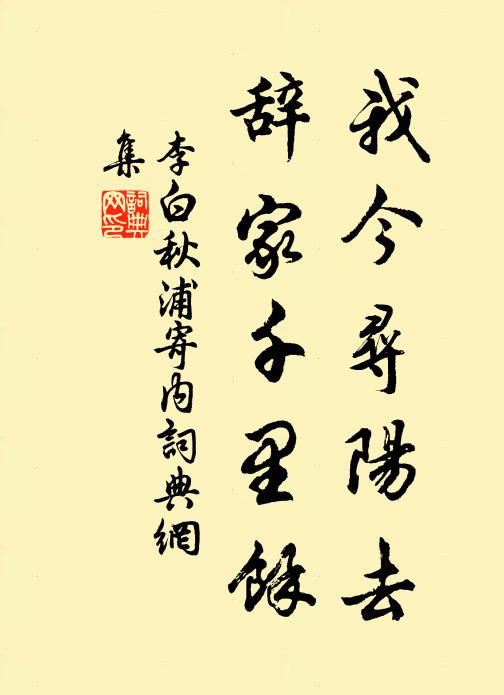 我今尋陽去
辞家千里餘
李白秋浦寄內詞典網
集
詞典
网印